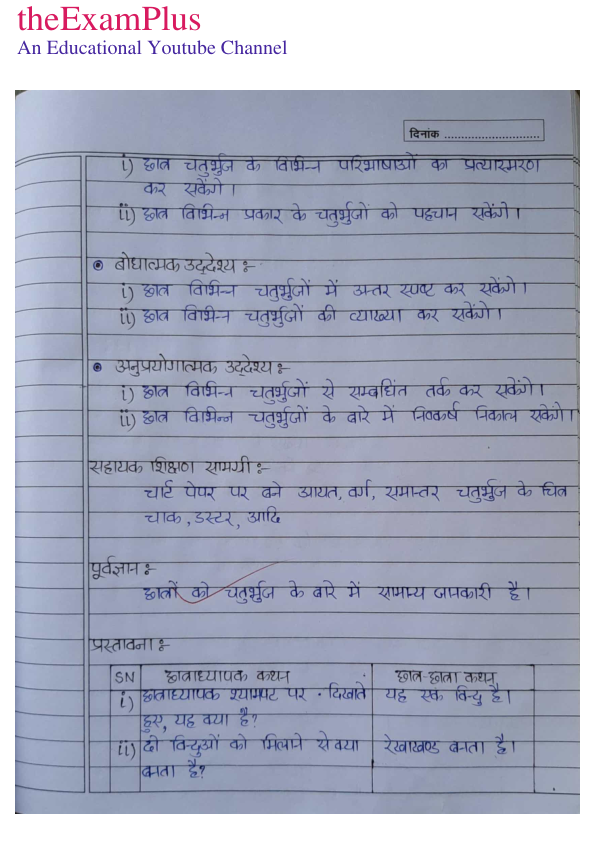 theExamPlus
An Educational Youtube Channel
दिनांक ............................
i) छात्र चतुर्भुज के विभिन्न परिभाषाओं का प्रत्यास्मरण
कर सकेंगे।
ii) छात्र विभिन्न प्रकार के चतुर्भुजों को पहचान सकेंगे।
बोधात्मक उद्देश्य :-
i) छात्र विभिन्न चतुर्भुजों में अन्तर स्पष्ट कर सकेंगे।
ii) छात्र विभिन्न चतुर्भुजों की व्याख्या कर सकेंगे।
अनुप्रयोगात्मक उद्देश्य :-
i) छात्र विभिन्न चतुर्भुजों से सम्बधिंत तर्क कर सकेंगे।
ii) छात्र विभिन्न चतुर्भुजों के बारे में निष्कर्ष निकाल सकेंगे।
सहायक शिक्षण सामग्री :-
चार्ट पेपर पर बने आयत, वर्ग, समान्तर चतुर्भुज के चित्र
चाक, डस्टर, आदि
पूर्वज्ञान :-
छात्रों को चतुर्भुज के बारे में सामान्य जानकारी है।
प्रस्तावना :-
SN छात्राध्यापक कथन छात्र-छात्रा कथन
i) छात्राध्यापक श्यामपट पर दिखाते यह एक बिन्दु है।
हुए, यह क्या है?
ii) दो बिन्दुओं को मिलाने से क्या रेखाखण्ड बनता है।
बनता है?